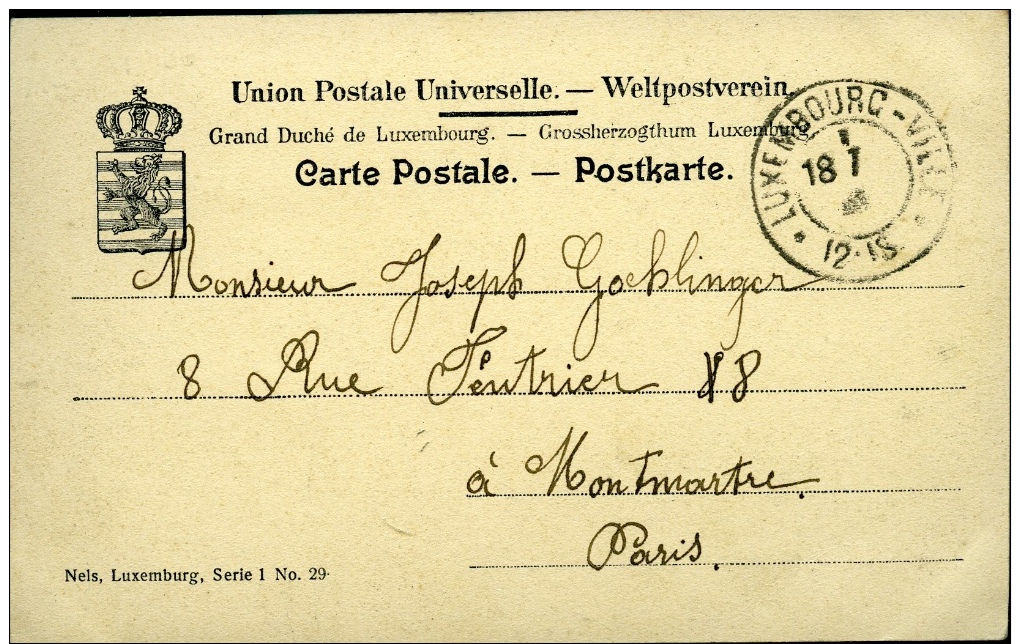 Union Postale Universelle. — Weltpostverein.
Grand Duché de Luxembourg. — Grossherzogthum Luxemburg.
Carte Postale. — Postkarte.
LUXEMBOURG-VILLE
18 7
12-1S
Monsieur Joseph Gochlinger
8 Rue Féutrier 8
à Montmartre.
Paris.
Nels, Luxemburg, Serie 1 No. 29.